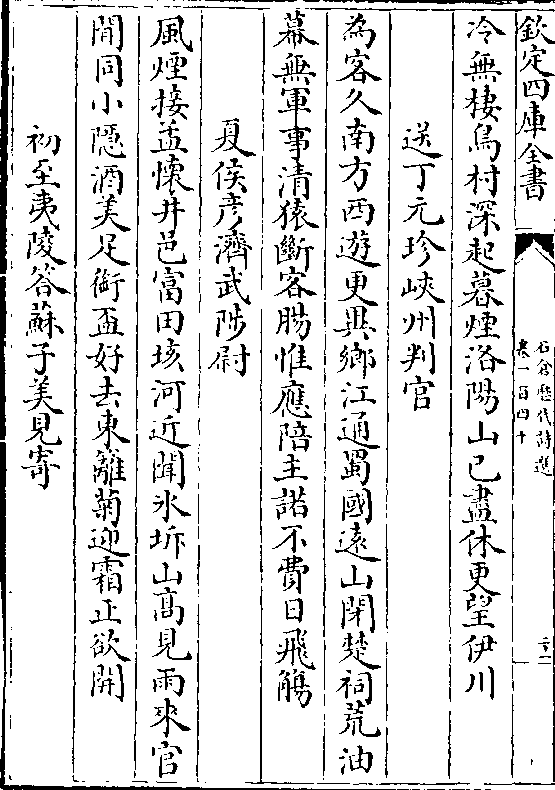 欽定四庫全書
石倉歷代詩選
卷一百四十
冷無棲鳥村深起暮煙洛陽山已盡休更望伊川
送丁元珍峽州判官
為客久南方西遊更異鄉江通蜀國遠山閉楚祠荒油
幕無軍事清猿斷客腸惟應陪主諾不費日飛觴
夏侯彥濟武陟尉
風煙接孟懷井邑富田垓河近聞氷坼山髙見雨來官
閒同小隱酒美足銜盃好去東籬菊迎霜正欲開
初至夷陵答蘇子美見寄